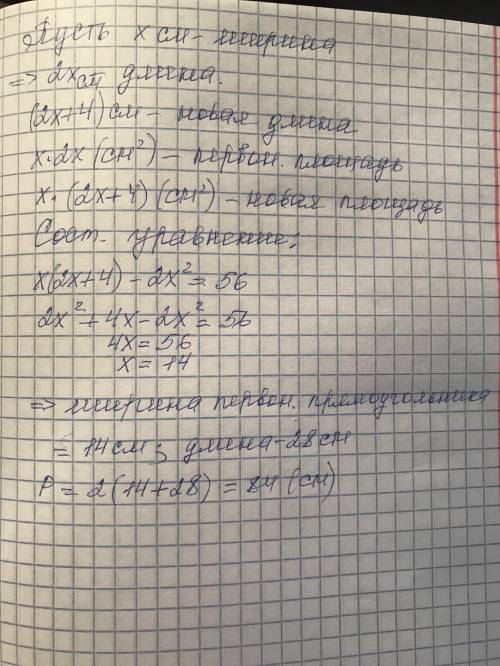 Пусть x см - ширина
=> 2x см длина.
(2x+4) см - новая длина
x·2x (см²) - первон. площадь
x·(2x+4) (см²) - новая площадь
Сост. уравнение:
x(2x+4) - 2x² = 56
2x² + 4x - 2x² = 56
4x = 56
x = 14
=> ширина первон. прямоугольника
= 14 см; длина - 28 см
P = 2(14+28) = 84 (см)